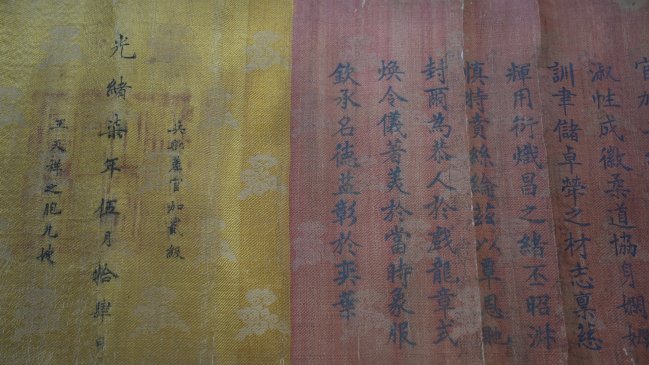 官加
淑性成徽柔道協身嫻姆
訓聿儲卓犖之材志稟慈
輝用衍熾昌之緒丕昭淑
慎特賁絲綸茲以覃恩貤
封爾為恭人於戲龍章式
煥令儀著美於當時象服
欽承名德益彰於奕葉
兵部差官加貳級
光緒柒年伍月拾肆日
王天祥之胞兄嫂